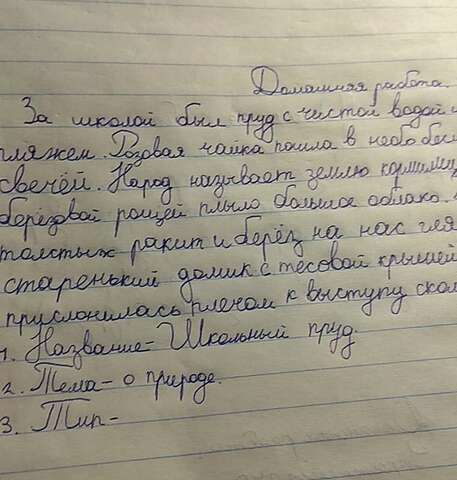 Домашняя работа.
За школой был пруд с чистой водой и
пляжем. Розовая чайка пошла в небо
свечёй. Народ называет землю
берёзовой рощей плыло большое облако.
толстых ракит и берёз на нас
старенький домик с тесовой крышей
прислонилась плечом к выступу
1. Название- Школьный пруд.
2. Тема- о природе.
3. Тип-